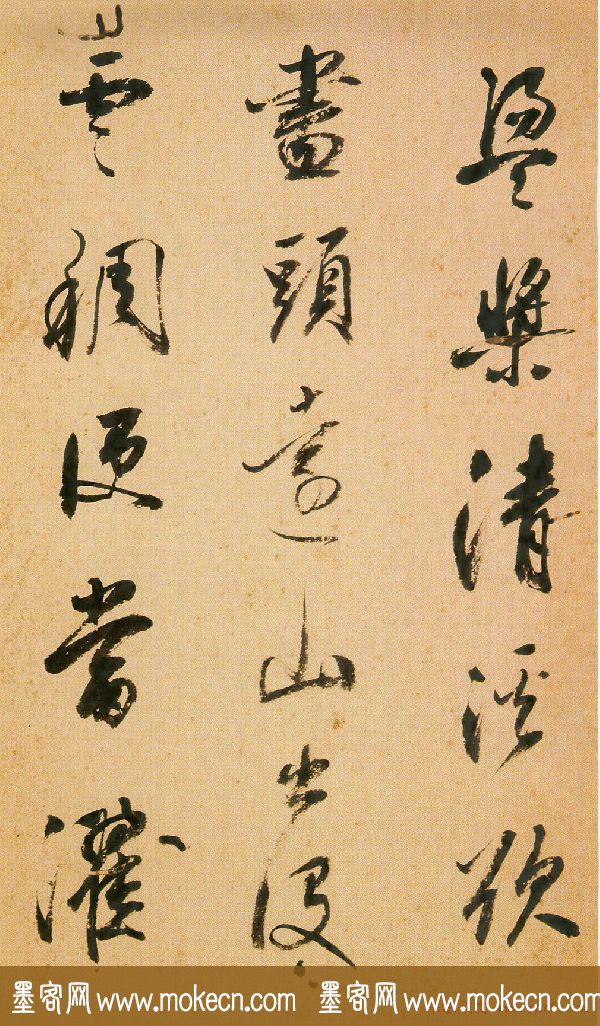 盪槳清溪欲
盡頭遠山出沒
雲稠便當濯
墨客网 www.mokecn.com 墨客网 www.mokecn.com